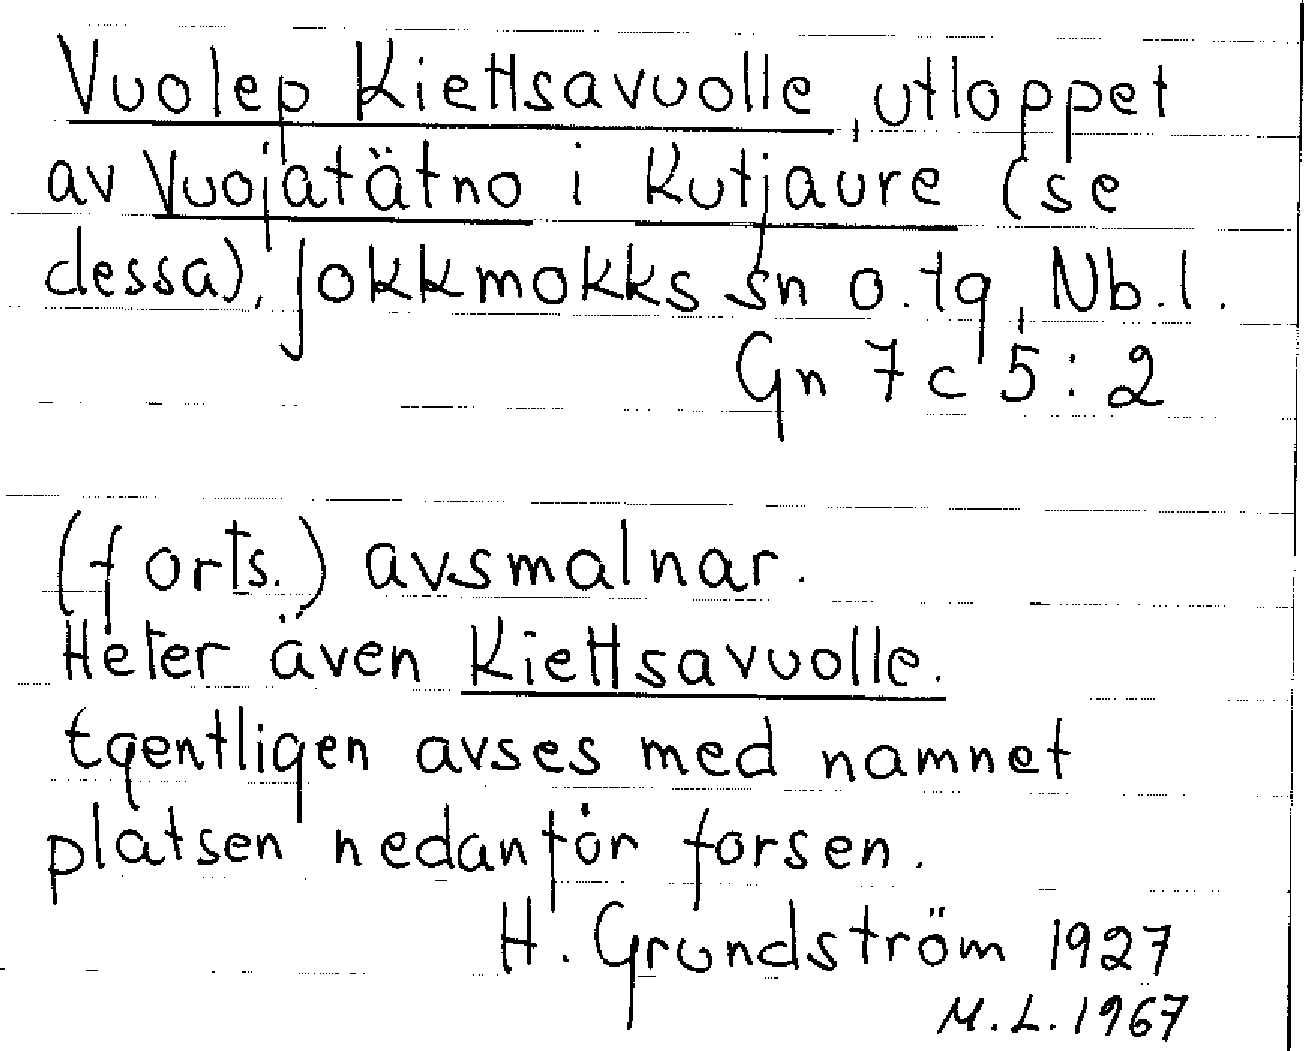 Vuolep Kiettsavuolle, utloppet
av Vuojatätno i Kutjaure (se
dessa), Jokkmokks sn o. tg, Nb. l.
Gn 7c 5:2
(forts.) avsmalnar.
Heter även Kiettsavuolle.
Egentligen avses med namnet
platsen nedanför forsen.
H. Grundström 1927
M. L. 1967